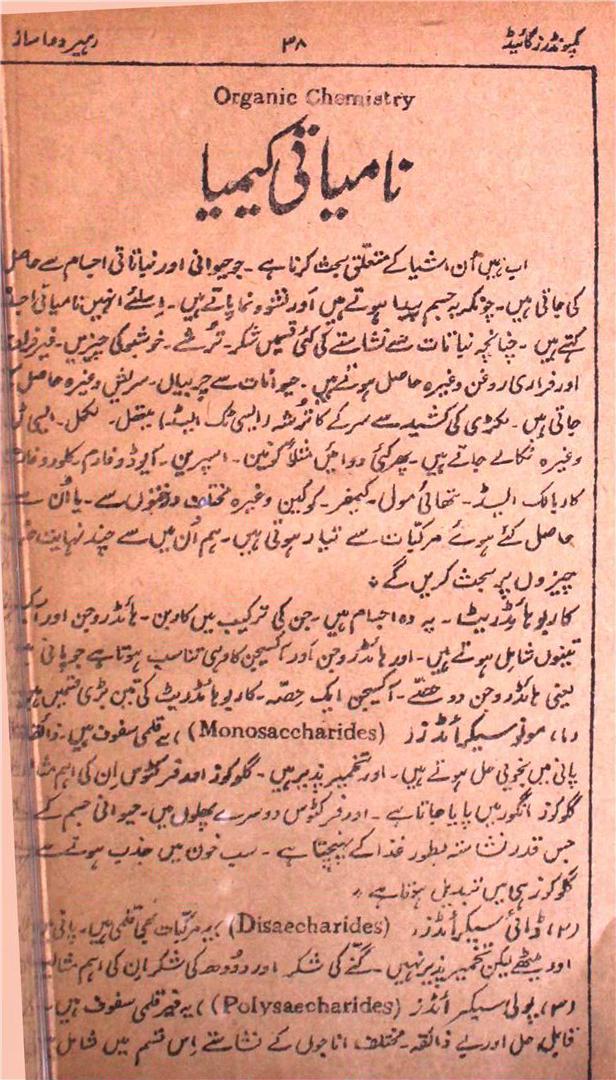 کمپونڈرز گائیڈ ۳۸ رہبر دوا ساز
Organic Chemistry
نامیاتی کیمیا
اب ہمیں اُن اشیا کے متعلق بحث کرنا ہے۔ جو حیوانی اور نباتاتی اجسام سے حاصل
کی جاتی ہیں۔ چونکہ یہ جسم پیدا ہوتے ہیں اور نشوونما پاتے ہیں۔ اِسلئے انہیں نامیاتی
کہتے ہیں۔ چنانچہ نباتات سے نشاستے کی کئی قسمیں شکر۔ تُرشے۔ خوشبو کی چیزیں۔ غیر فراری
اور فراری روغن وغیرہ حاصل ہوتے ہیں۔ حیوانات سے چربیاں۔ سریش وغیرہ حاصل
جاتی ہیں۔ لکڑی کی کشید سے سرکے کا تُرشہ (ایسی ٹک ایسڈ) میتھل۔ الکحل۔ ایسی ٹو
وغیرہ نکالے جاتے ہیں۔ پھر کئی دوائیں مثلاً کونین۔ اسپرین۔ آیوڈوفارم۔ کلوروفارم
کاربالک ایسڈ۔ تھائی مول۔ کیمفر۔ کوکین وغیرہ مختلف درختوں سے۔ یا اُن سے
حاصل کئے ہوئے مرکبات سے تیار ہوتی ہیں۔ ہم اُن میں سے چند نہایت
چیزوں پر بحث کریں گے
کاربوہائڈریٹ۔ یہ وہ اجسام ہیں۔ جن کی ترکیب میں کاربن۔ ہائڈروجن اور
تینوں شامل ہوتے ہیں۔ اور ہائڈروجن اور آکسیجن کا وہی تناسب ہوتا ہے جو پانی
یعنی ہائڈروجن دو حصّے۔ آکسیجن ایک حِصّہ۔ کاربوہائڈریٹ کی تین بڑی قسمیں
(۱) مونو سیکرائڈز (Monosaccharides) یہ قلمی سفوف ہیں۔
پانی میں بخوبی حل ہوتے ہیں۔ اور تخمیر پذیر ہیں۔ گلوکوز اور فرکٹوس اِن کی اہم
گلوکوز انگور میں پایا جاتا ہے۔ اور فرکٹوس دوسرے پھلوں میں۔ حیوانی جسم کے
جس قدر نشاستہ بطور غذا کے پہنچتا ہے۔ سب خون میں جذب ہونے سے
گلوکوز ہی میں تبدیل ہوتا ہے۔
(۲) ڈائی سیکرائڈز (Disaecharides) یہ مرکبات بھی قلمی ہیں۔ پانی
اور میٹھے لیکن تخمیر پذیر نہیں۔ گنّے کی شکر اور دودھ کی شکر اِن کی اہم
(۳) پولی سیکرائڈز (Polysaecharides) یہ غیر قلمی سفوف ہیں۔
قابلِ حل اور بے ذائقہ۔ مختلف اناجوں کے نشاستے اِس قسم میں شامل